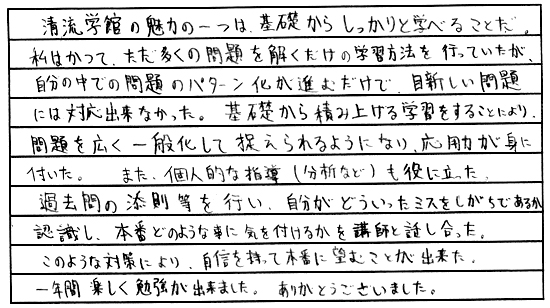 清流学館の魅力の一つは、基礎からしっかりと学べることだ。
私はかつて、ただ多くの問題を解くだけの学習方法を行っていたが、
自分の中での問題のパターン化が進むだけで、目新しい問題
には対応出来なかった。 基礎から積み上げる学習をすることにより、
問題を広く一般化して捉えられるようになり、応用力が身に
付いた。 また、個人的な指導(分析など)も役に立った。
過去問の添削等を行い、自分がどういったミスをしがちであるか
認識し、本番どのような事に気を付けるかを講師と話し合った。
このような対策により、自信を持って本番に望むことが出来た。
一年間楽しく勉強が出来ました。 ありがとうございました。